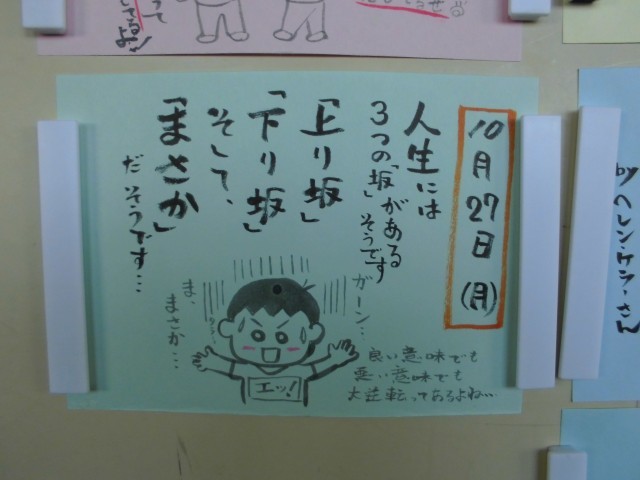 10月27日(月)
人生には
3つの「坂」がある
そうです
「上り坂」
「下り坂」
そして、
「まさか」
だそうです…
ガーン…
ま、
まさか…
エッ!
良い意味でも
悪い意味でも
大逆転ってあるよね…
byヘレン・ケラーさん